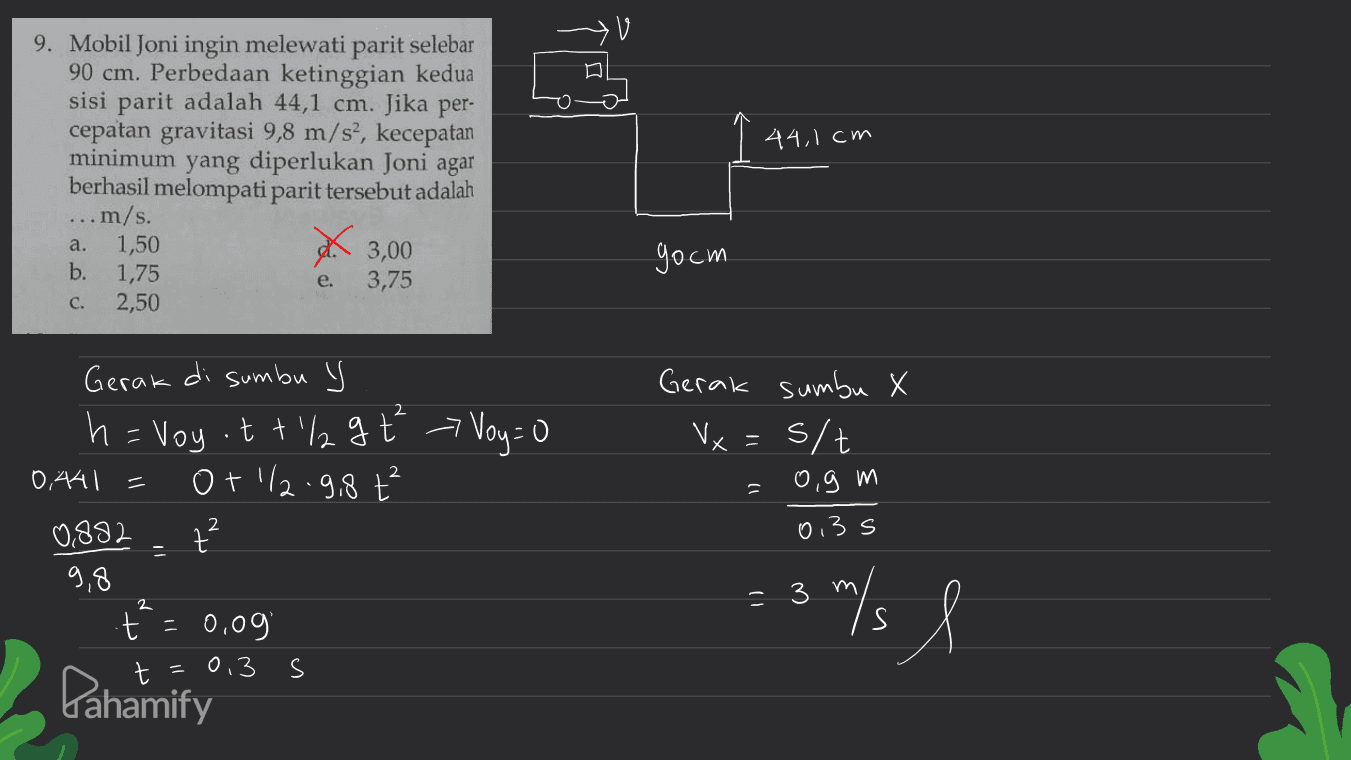 9. Mobil Joni ingin melewati parit selebar
90 cm. Perbedaan ketinggian kedua
sisi parit adalah 44,1 cm. Jika per-
cepatan gravitasi 9,8 m/s², kecepatan
minimum yang diperlukan Joni agar
berhasil melompati parit tersebut adalah
...m/s.
a. 1,50
b. 1,75
c. 2,50
d. 3,00
e. 3,75
→ V
44,1 cm
90cm
Gerak di sumbu y
h = Voy . t + 1/2 g t² → Voy = 0
0,441 = 0 + 1/2 . 9,8 t²
0,882 / 9,8 = t²
t² = 0,09
t = 0,3 s
Gerak sumbu X
Vx = s/t
= 0,9 m / 0,3 s
= 3 m/s
Pahamify